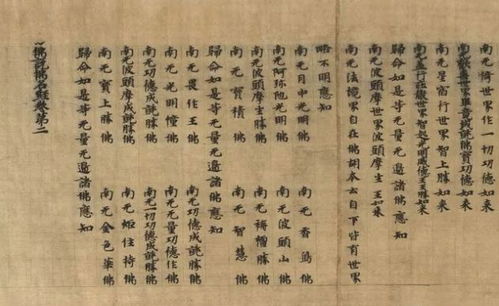 南无倚世界作一切功德如来
南无歡喜世界畢竟成就佛寶功德如来
南无星宿行世界智上勝如来
南无蓋行莊嚴世界智起光明威德王勝如来
歸命如是等无量无邊諸佛應知
南无波頭摩世界波頭摩生王如来
南无法境界自在佛胡本云自下皆有世界
略不明應知
南无月中光明佛 南无香佛
南无阿弥陁光明佛 南无波頭山佛
南无波頭摩生勝佛 南无栴檀勝佛
南无寶積佛 南无智慧佛
歸命如是等无量无邊諸佛應知
南无畏作王佛 南无功德成就勝佛
南无光明幢佛 南无无量功德作佛
南无功德成就勝佛 南无一切功德成就勝佛
南无波頭摩成就勝佛 南无炬住持佛
南无寶上勝佛 南无金色華佛
歸命如是等无量无邊諸佛應知
佛說佛名經卷第二